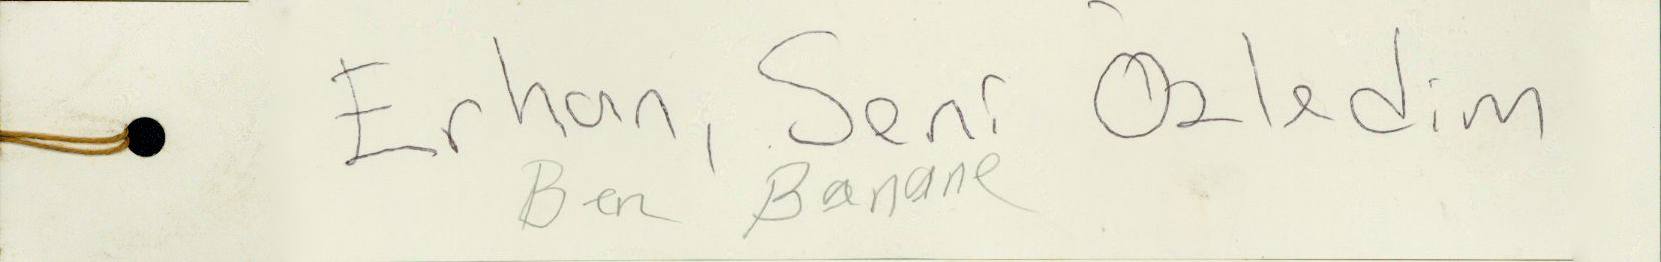 Erhan, Seni Özledim
Ben Banane